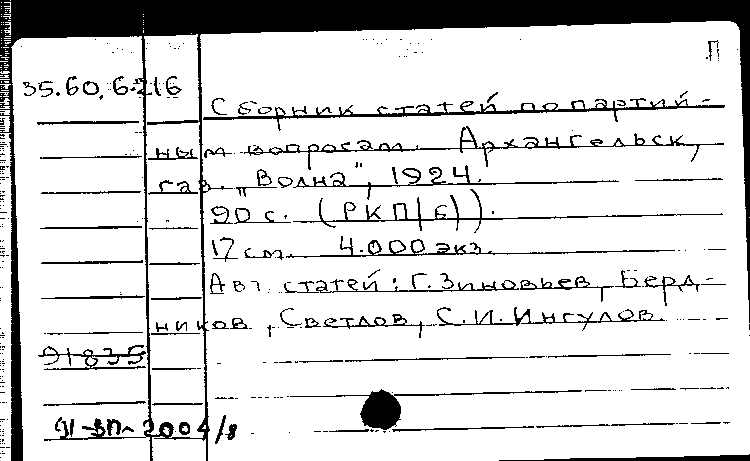 П
35.60, 6.216
Сборник статей по партий-
ным вопросам. Архангельск,
газ. „Волна", 1924.
90 с. (РКП/б)).
17 см. 4.000 экз.
Авт. статей: Г. Зиновьев, Берд-
ников, Светлов, С.И. Ингулов.
91835
2004/8